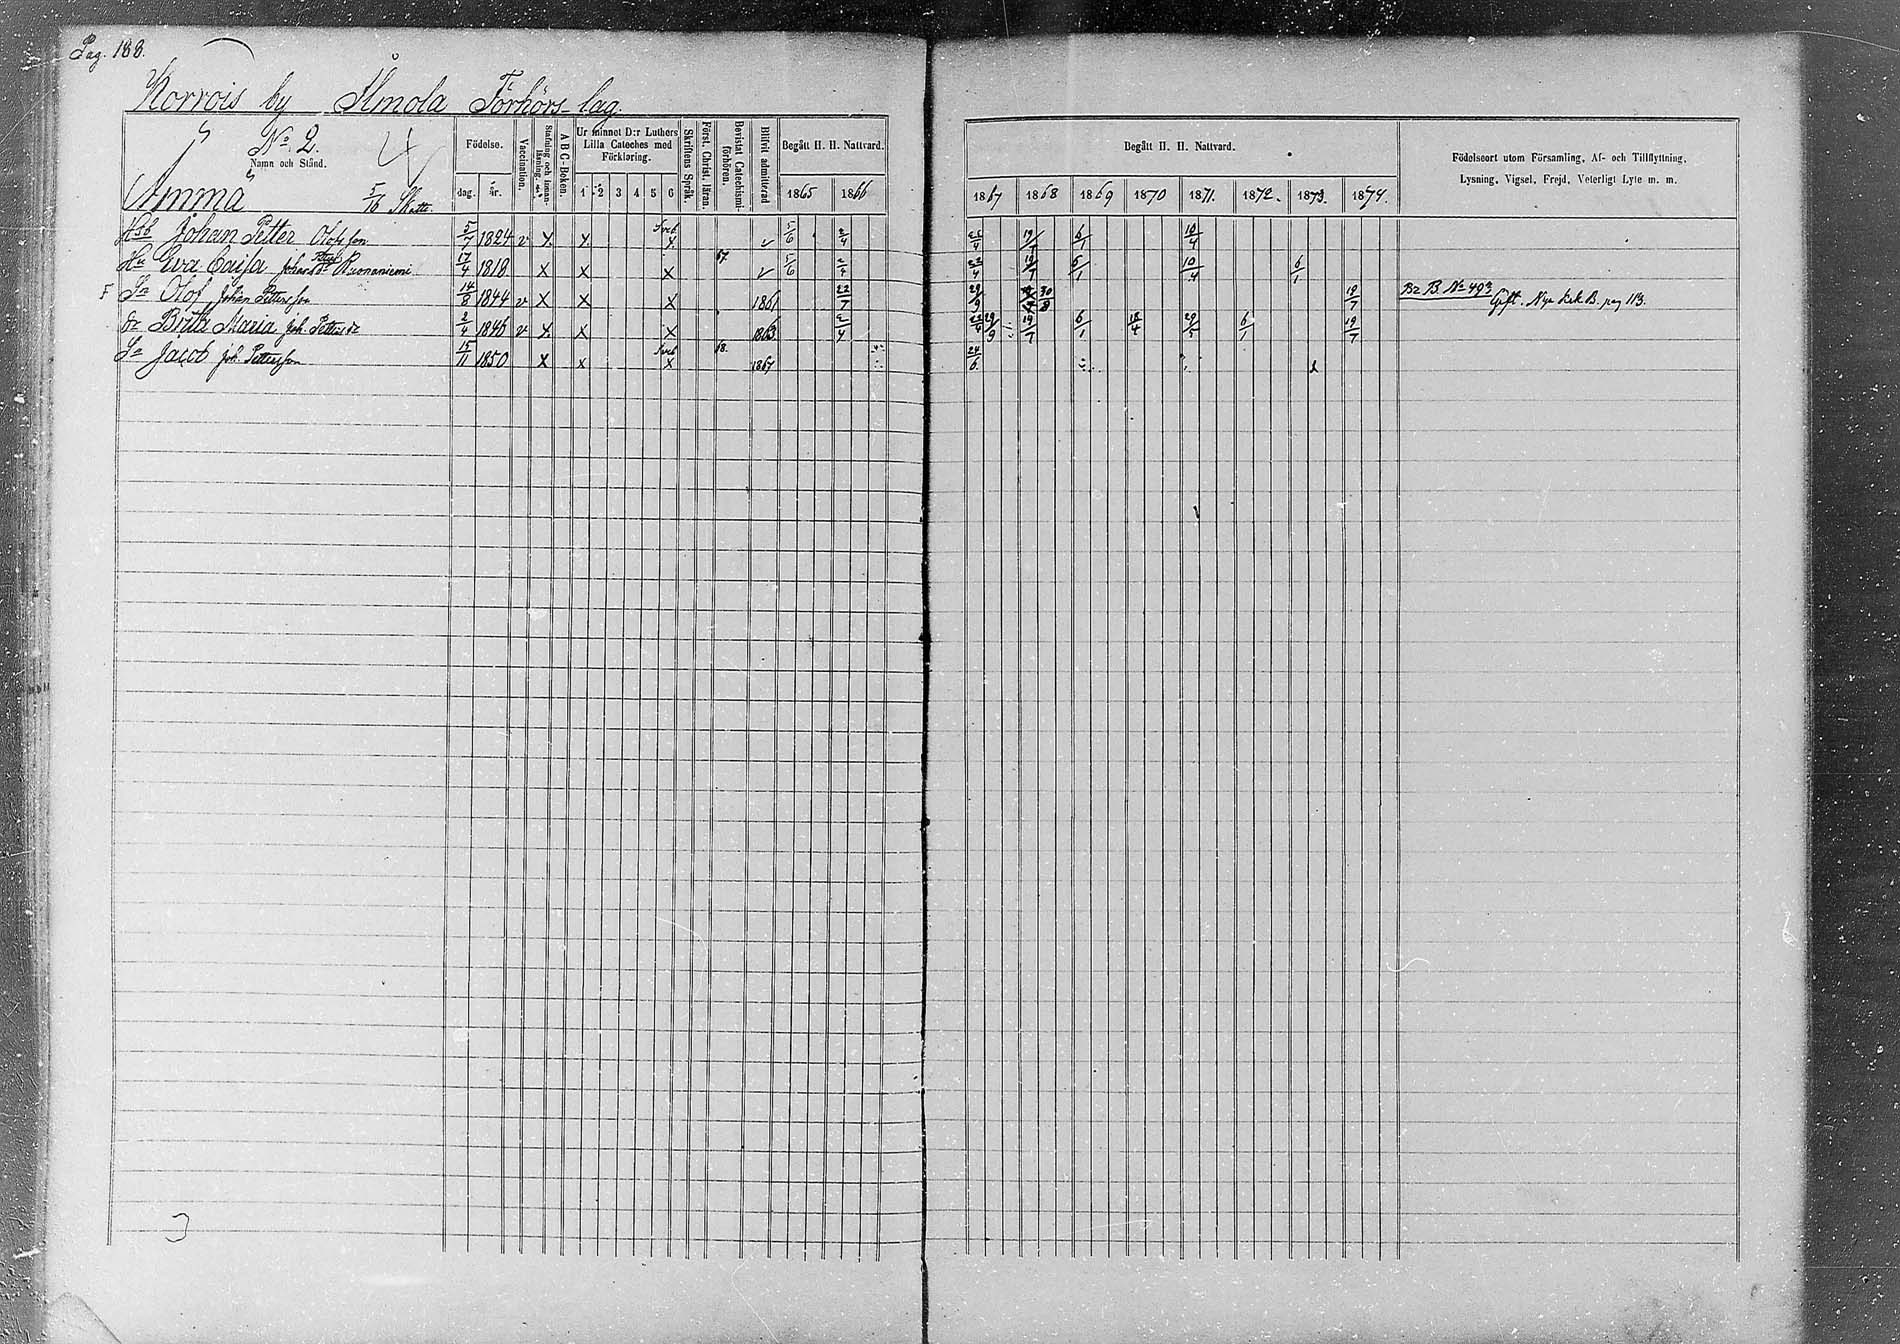 Pag. 188.
Korrois by Ålmola Förhörs-lag.
No. 2.
Namn och Stånd.
Amma 5/18 Skatt.
Födelse. dag. år.
Vaccination.
Stafning och innan-läsning.
A B C-Boken.
Ur minnet D:r Luthers Lilla Cateches med Förklaring.
1 2 3 4 5 6
Skriftens Språk.
Först. Christ. läran.
Bevistat Catechismi-förhören.
Blifvit admitterad
Begått H. H. Nattvard.
1865 1866
Begått H. H. Nattvard.
1867 1868 1869 1870 1871. 1872. 1873. 1874.
Födelseort utom Församling, Af- och Tillflyttning,
Lysning, Vigsel, Frejd, Veterligt Lyte m. m.
Johan Petter Olofsson 5/7 1824 v x x x v 5/6 2/4 19/7 6/1 10/4
Hu Eva Caisa Johansdr Ruonaniemi 17/4 1818 x x x 67. v 5/6 2/4 22/4 19/7 6/1 10/4 6/1
F Sn Olof Johan Pettersson 14/8 1844 v x x x 1861 22/7 29/9 30/8 19/7 Br B. No 493 Gift. Nya Lek B. pag 113.
dr Brita Maria Joh. Petters dr 2/4 1846 v x x x 1863 2/4 22/4 29/9 19/7 6/1 18/4 29/5 6/1 19/7
Sn Jacob Joh. Pettersson 15/11 1850 x x x 68. 1867 24/6